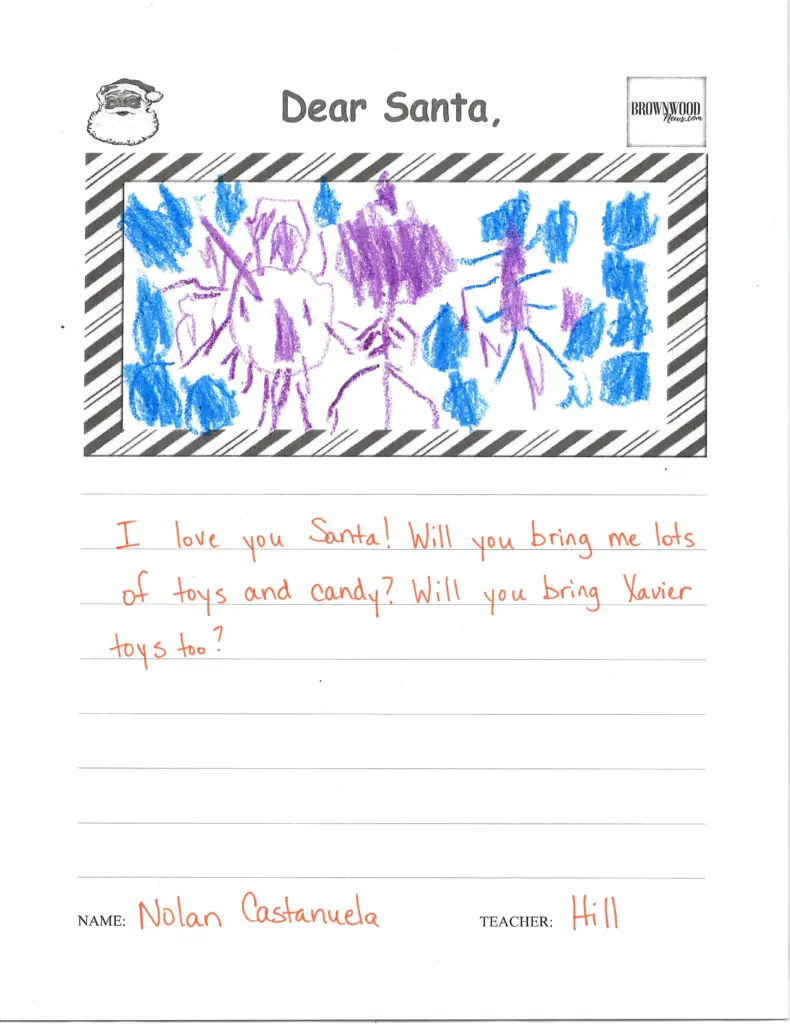 Dear Santa,
BROWNWOOD
News.com
I love you Santa! Will you bring me lots
of toys and candy? Will you bring Xavier
toys too?
NAME: Nolan Castanuela
TEACHER: Hill